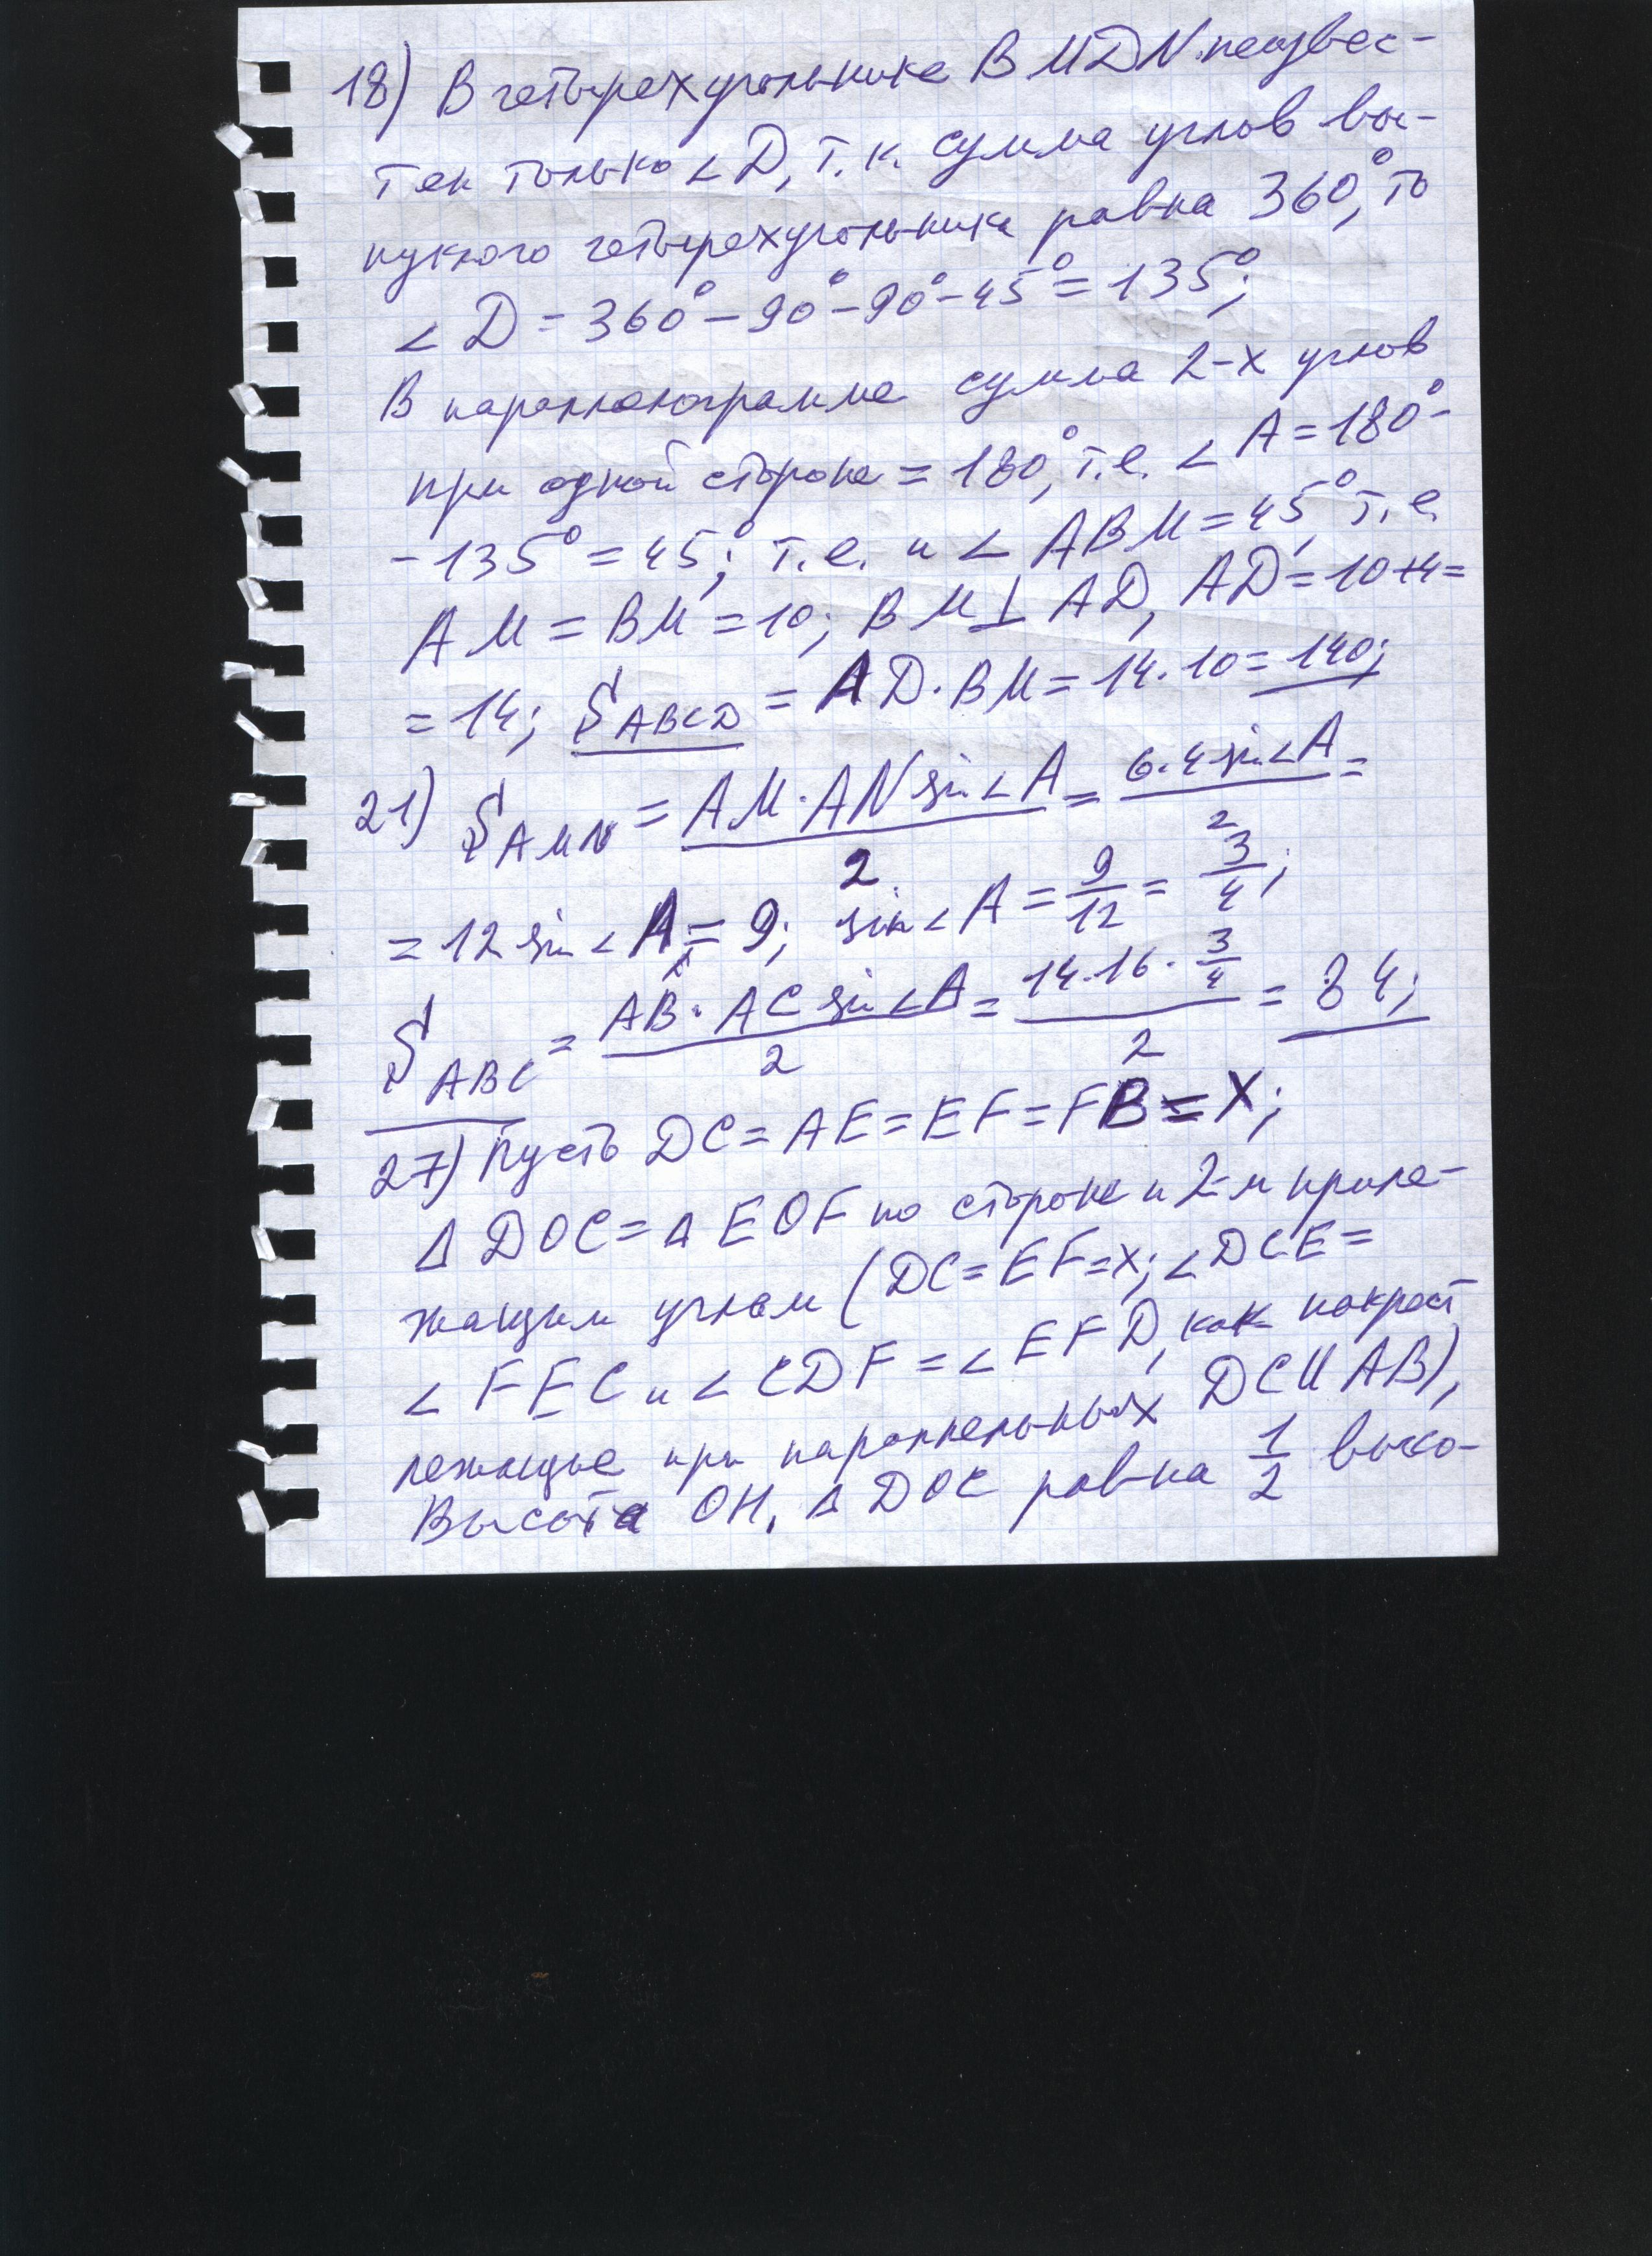 18) В четырехугольнике BMDN неизвес-
тен только ∠D, т.к. сумма углов вы-
пуклого четырехугольника равна 360°, то
∠D = 360° - 90° - 90° - 45° = 135°;
В параллелограмме сумма 2-х углов
при одной стороне = 180°, т.е. ∠A = 180° -
- 135° = 45°; т.е. и ∠ABM = 45°, т.е.
AM = BM = 10; BM ⊥ AD, AD = 10+4 =
= 14; S ABCD = AD · BM = 14 · 10 = 140;
21) S AMN = AM · AN sin∠A / 2 = 6 · 4 sin∠A / 2 =
= 12 sin∠A = 9; sin∠A = 9/12 = 3/4;
S ABC = AB · AC sin∠A / 2 = 14 · 16 · 3/4 / 2 = 84;
27) Пусть DC = AE = EF = FB = X;
Δ DOC = Δ EOF по стороне и 2-м приле-
жащим углам (DC = EF = X; ∠DCE =
∠FEC и ∠CDF = ∠EFD, как накрест
лежащие при параллельных DC || AB),
Высота OH, Δ DOC равна 1/2 высо-